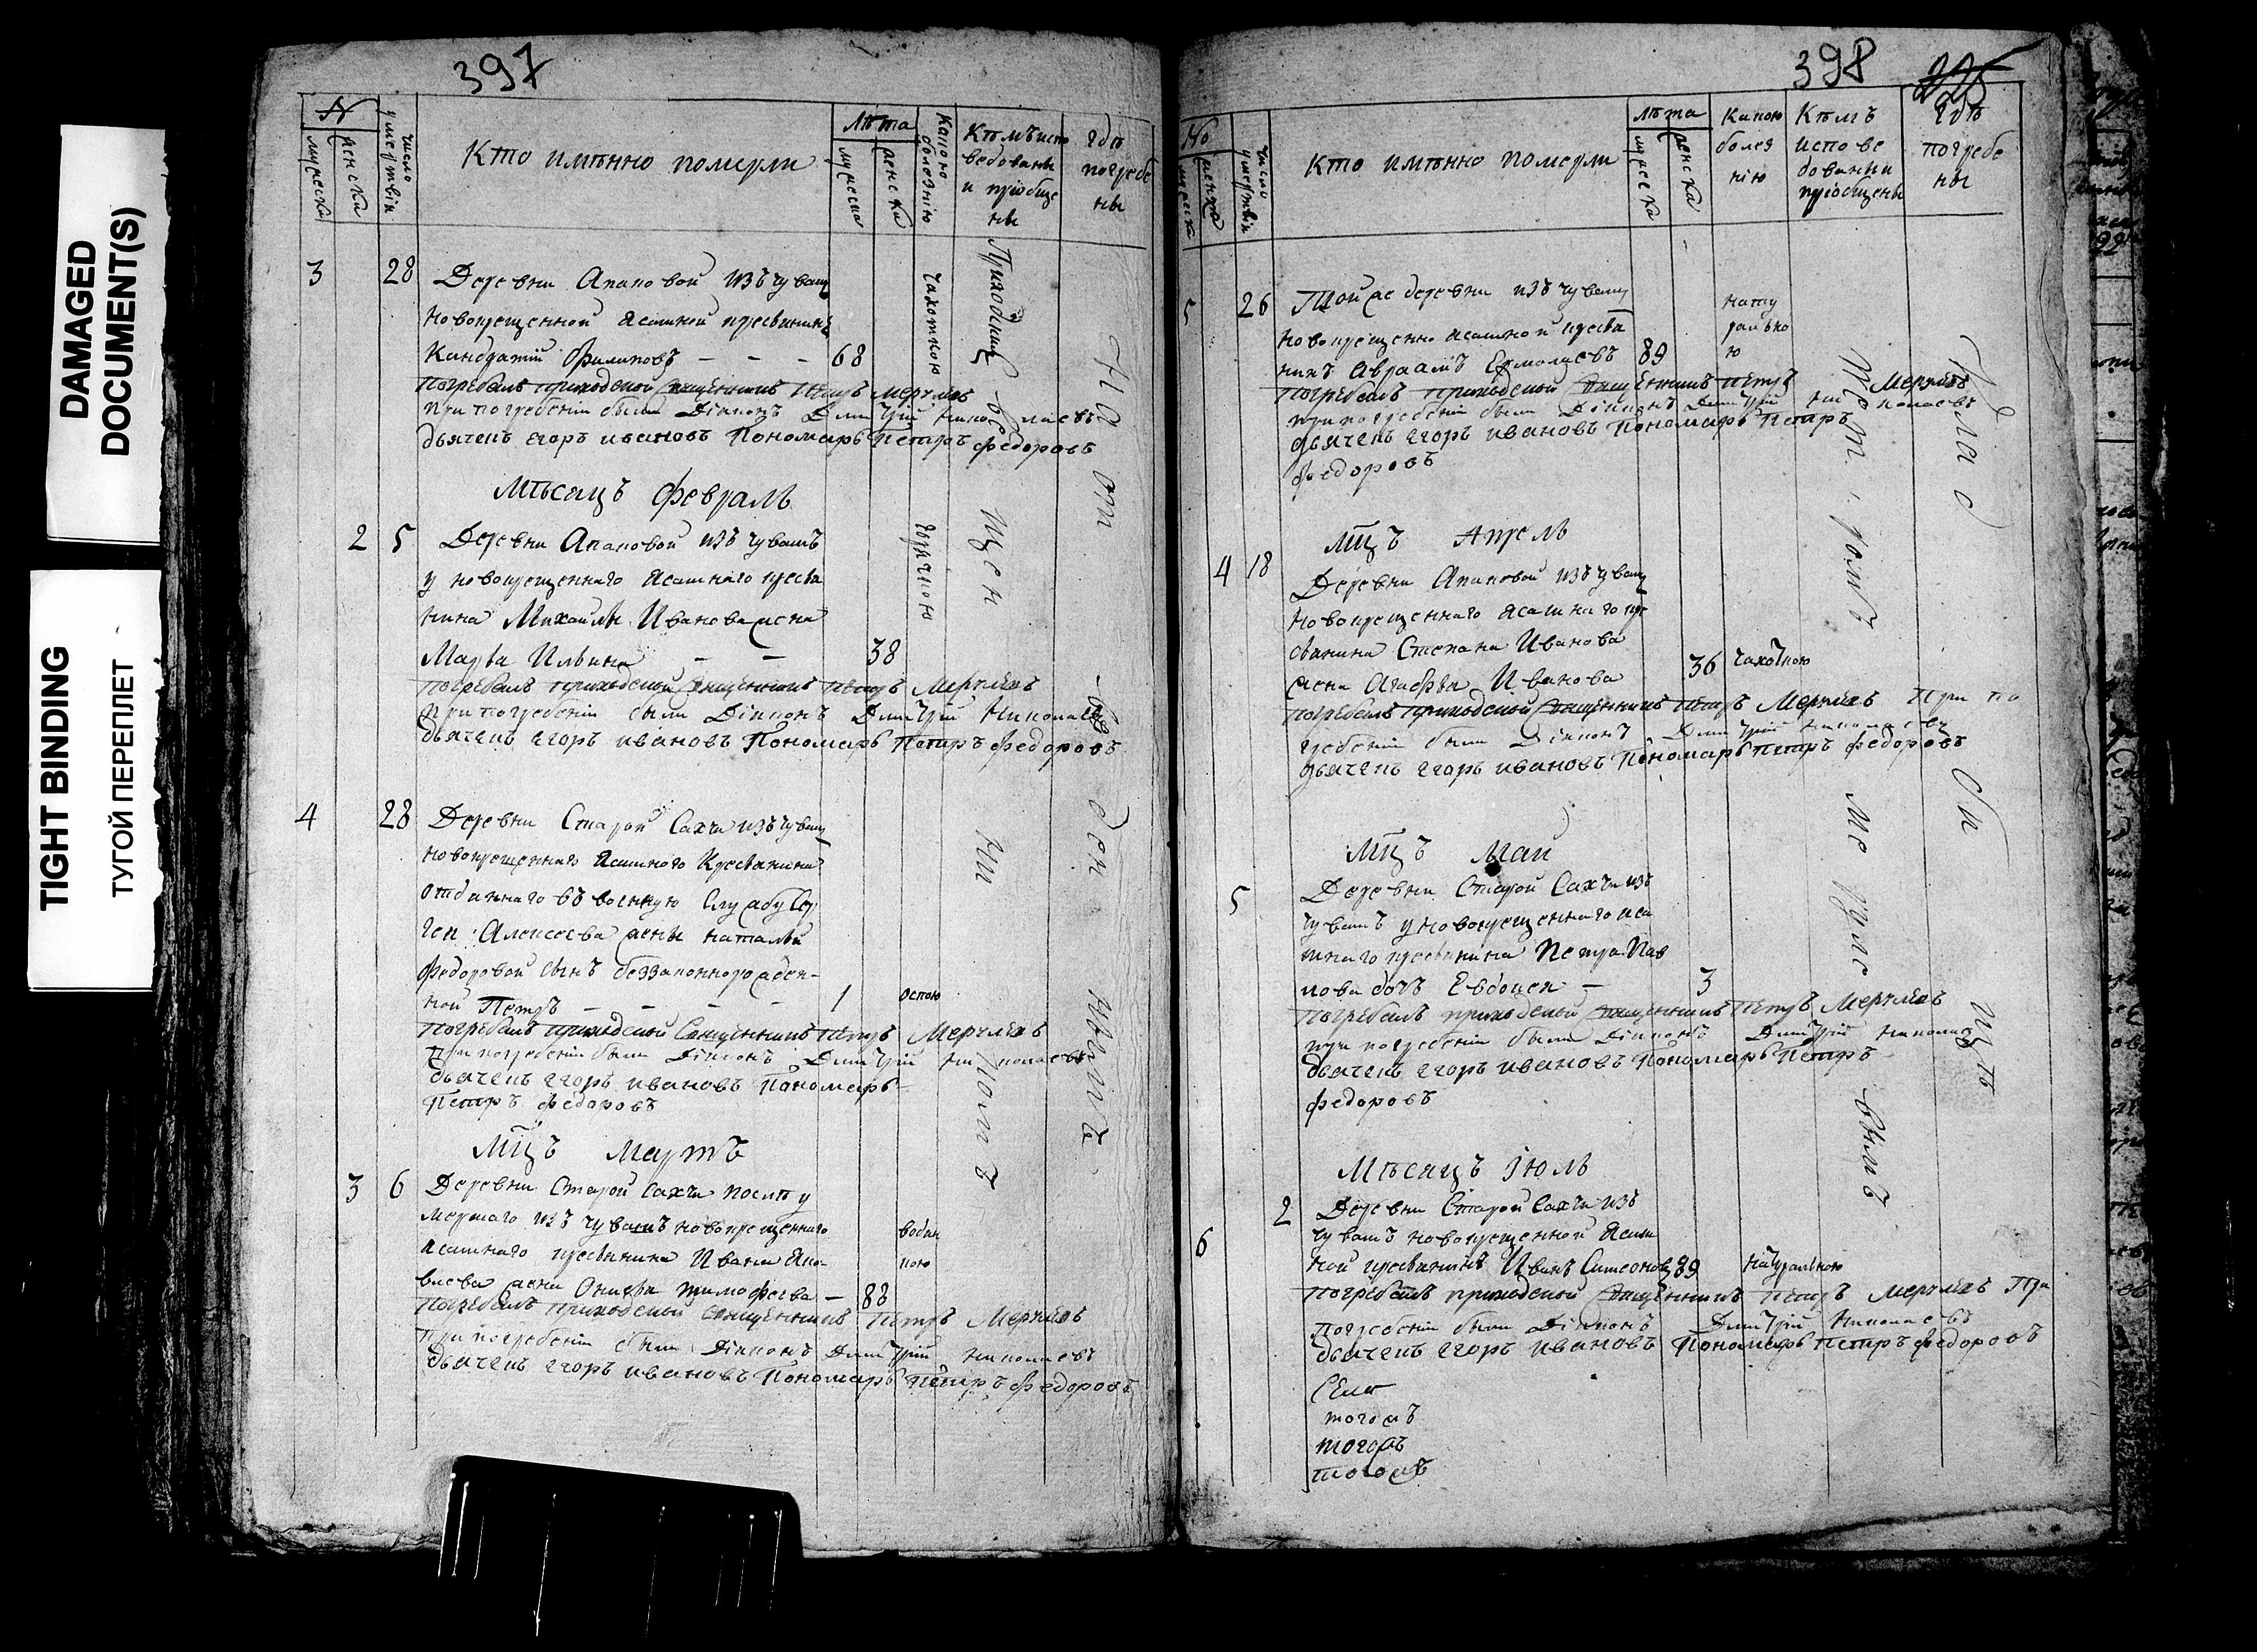 DAMAGED
DOCUMENT(S)
TIGHT BINDING
ТУГОЙ ПЕРЕПЛЕТ
397
№
мужеска
женска
число умертвїи
Кто имянно померли
Лѣта
мужеска
женска
Какою болезнїю
Кѣмъ испо
ведованы
и прїобще
ны
Гдѣ
погребе
ны
3 28 Деревни Апановой изъ чуваш
новокрещенной ясашной крестьянинъ
Кандратїй Филиповъ - - - 68 чахоткою
Погребалъ приходской священникъ Петръ
при погребенїи были Дїаконъ Димитрїй Николаевъ
дьячекъ Егоръ Ивановъ Пономарь Петръ Федоровъ
Мѣсяцъ Февраль
2 5 Деревни Апановой изъ чувашъ
у новокрещеннаго ясашнаго кресья
нина Михайлы Иванова жена
Марья Ильина - - 38 горячкою
Погребалъ приходской священникъ Петръ
при погребенїи были Дїаконъ Димитрїй Николаевъ
дьячекъ Егоръ Ивановъ Пономарь Петръ Федоровъ
4 28 Деревни Старой Сахчи изъ чуваш
новокрещеннаго ясашного Кресьянина
отданнаго въ военную службу Сер
геа Алексеева жены Натальи
Федоровой сынъ беззаконнорожден-
ной Петръ - - - - 1 оспою
Погребалъ приходской Священникъ Петръ
При погребенїи были Дїаконъ Димитрїй Николаевъ
дьячекъ Егоръ Ивановъ Пономарь
Петръ Федоровъ
Мцъ Мартъ
3 6 Деревни Старой Сахчи послѣ у
мершаго изъ чувашъ новокрещеннаго
ясашнаго кресьянина Ивана Яко-
влева жена Тимофеева - 88 водян
кою
Погребалъ приходской священникъ Петръ
При погребенїи были Дїаконъ Димитрїй Николаевъ
дьячекъ Егоръ Ивановъ Пономарь Петръ Федоровъ
Приходским священникомъ
На отведенномъ
398
№
мужеска
женска
число умертвїи
Кто имянно померли
лѣта
мужеска
женска
Какою
болез
нїю
Кѣмъ
испове
дованы и
прїобщены
Гдѣ
погребе
ны
5 26 Той же деревни изъ чуваш
новокрещенно ясашной кресья
нинъ Авраамъ Ермолаевъ 89 нату
ралько
ю
Погребалъ приходской Священникъ Петръ
при погребенїи были Дїаконъ Димитрїй Николаевъ
дьячекъ Егоръ Ивановъ Пономарь Петръ
Федоровъ
Мцъ Апрель
4 18 Деревни Апановой изъ чуваш
новокрещеннаго ясашнаго кре
сьянина Степана Иванова
жена Агафья Иванова 36 чахоткою
Погребалъ приходской Священникъ Петръ При по
гребенїи были Дїаконъ Димитрїй Николаевъ
дьячекъ Егоръ Ивановъ Пономарь Петръ Федоровъ
Мцъ Маи
5 Деревни Старой Сахчи изъ
чувашъ у новокрещеннаго яса
шнаго кресьянина Петра Пав
лова дочь Евдокея - 3
Погребалъ приходской Священникъ Петръ
при погребенїи были Дїаконъ Димитрїй Николаевъ
дьячекъ Егоръ Ивановъ Пономарь Петръ
Федоровъ
Мѣсяцъ Іюль
6 2 Деревни Старой Сахчи изъ
чувашъ новокрещенной Ясаш
ной кресьянинъ Иванъ Симеоновъ 89 натуралькою
Погребалъ приходской Священникъ Петръ При
погребенїи были Дїаконъ Димитрїй Николаевъ
дьячекъ Егоръ Ивановъ Пономарь Петръ Федоровъ
Села
тогожъ
тогожъ
тогожъ
Петромъ
Кла